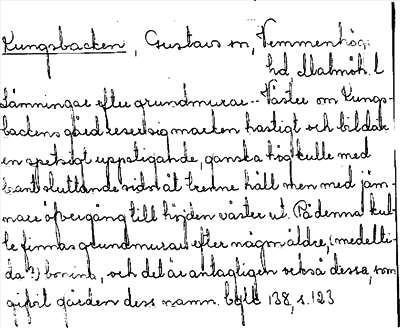 Kungsbacken, Gustavs sn, Vemmenhögs
hd Malmöh. l
Lämningar efter grundmurar. - Väster om Kungs-
backens gård reser sig marken hastigt och bildar
en spetsigt uppstigande, ganska hög kulle med
brant sluttande sidor åt trenne håll men med jäm-
nare öfvergång till höjden väster ut. På denna kul-
le finnas grundmurar efter någon äldre, (medelti-
da?) boning, och det är antagligen också dessa, som
gifvit gården dess namn. 138, s. 123